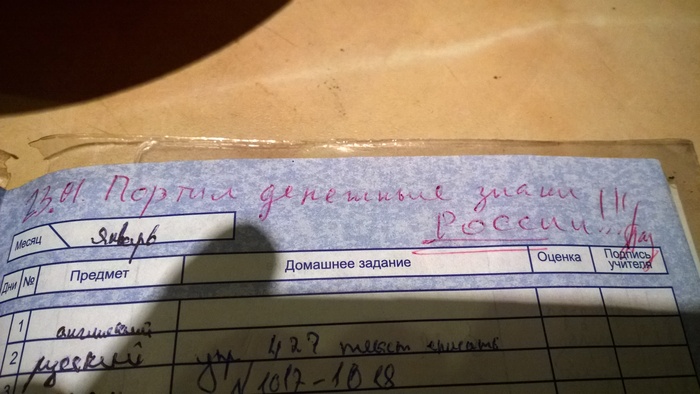 23.01 Портил денежные знаки !!!
России...
Месяц январь
Дни № Предмет Домашнее задание Оценка Подпись учителя
1 английский
2 русский упр 427 текст
3 N 1017-1018